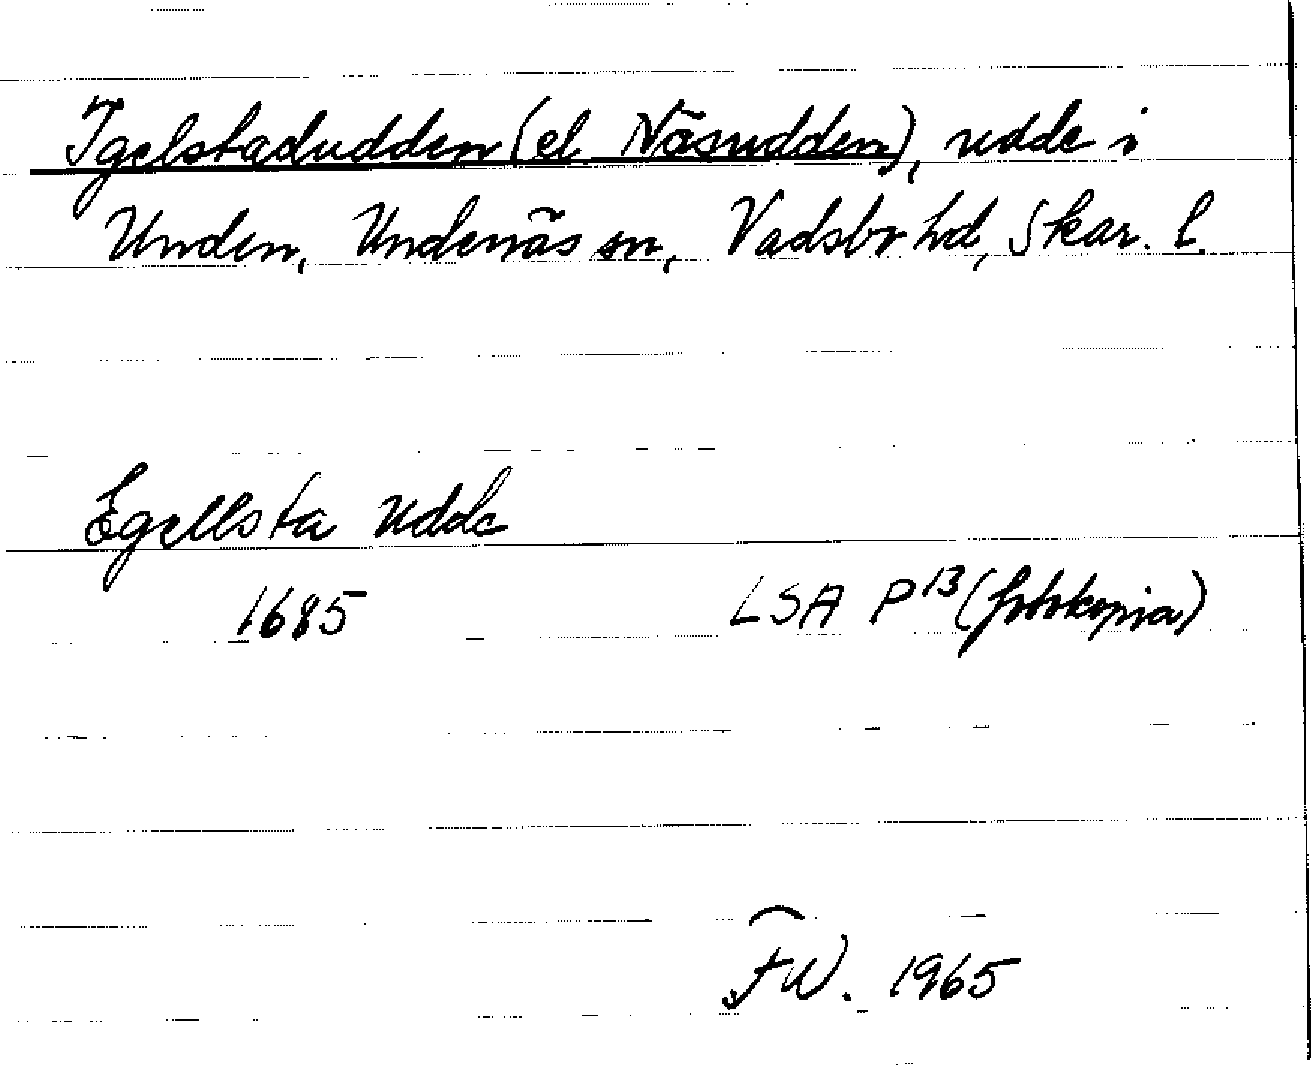 Igelstadudden (el Näsudden), udde i
Unden, Undenäs sn, Vadsbo hd, Skar. l.
Egellsta udde
1685 LSA P13 (fotokopia)
FW. 1965